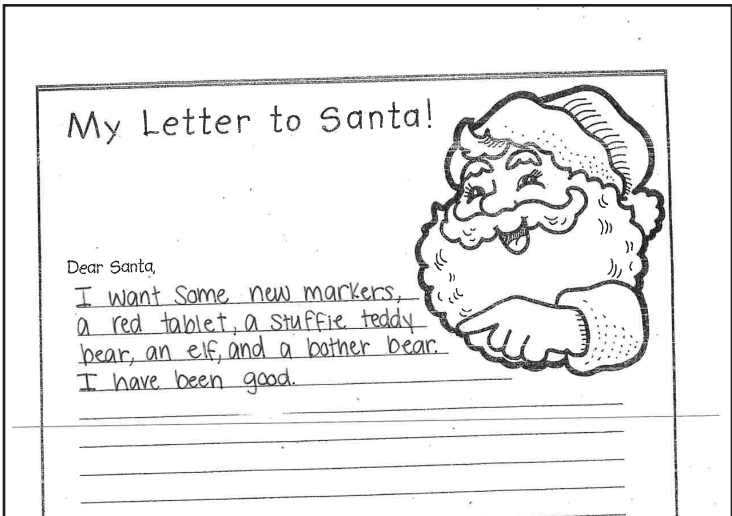 My Letter to Santa!
Dear Santa,
I want some new markers,
a red tablet, a stuffie teddy
bear, an elf, and a bother bear.
I have been good.